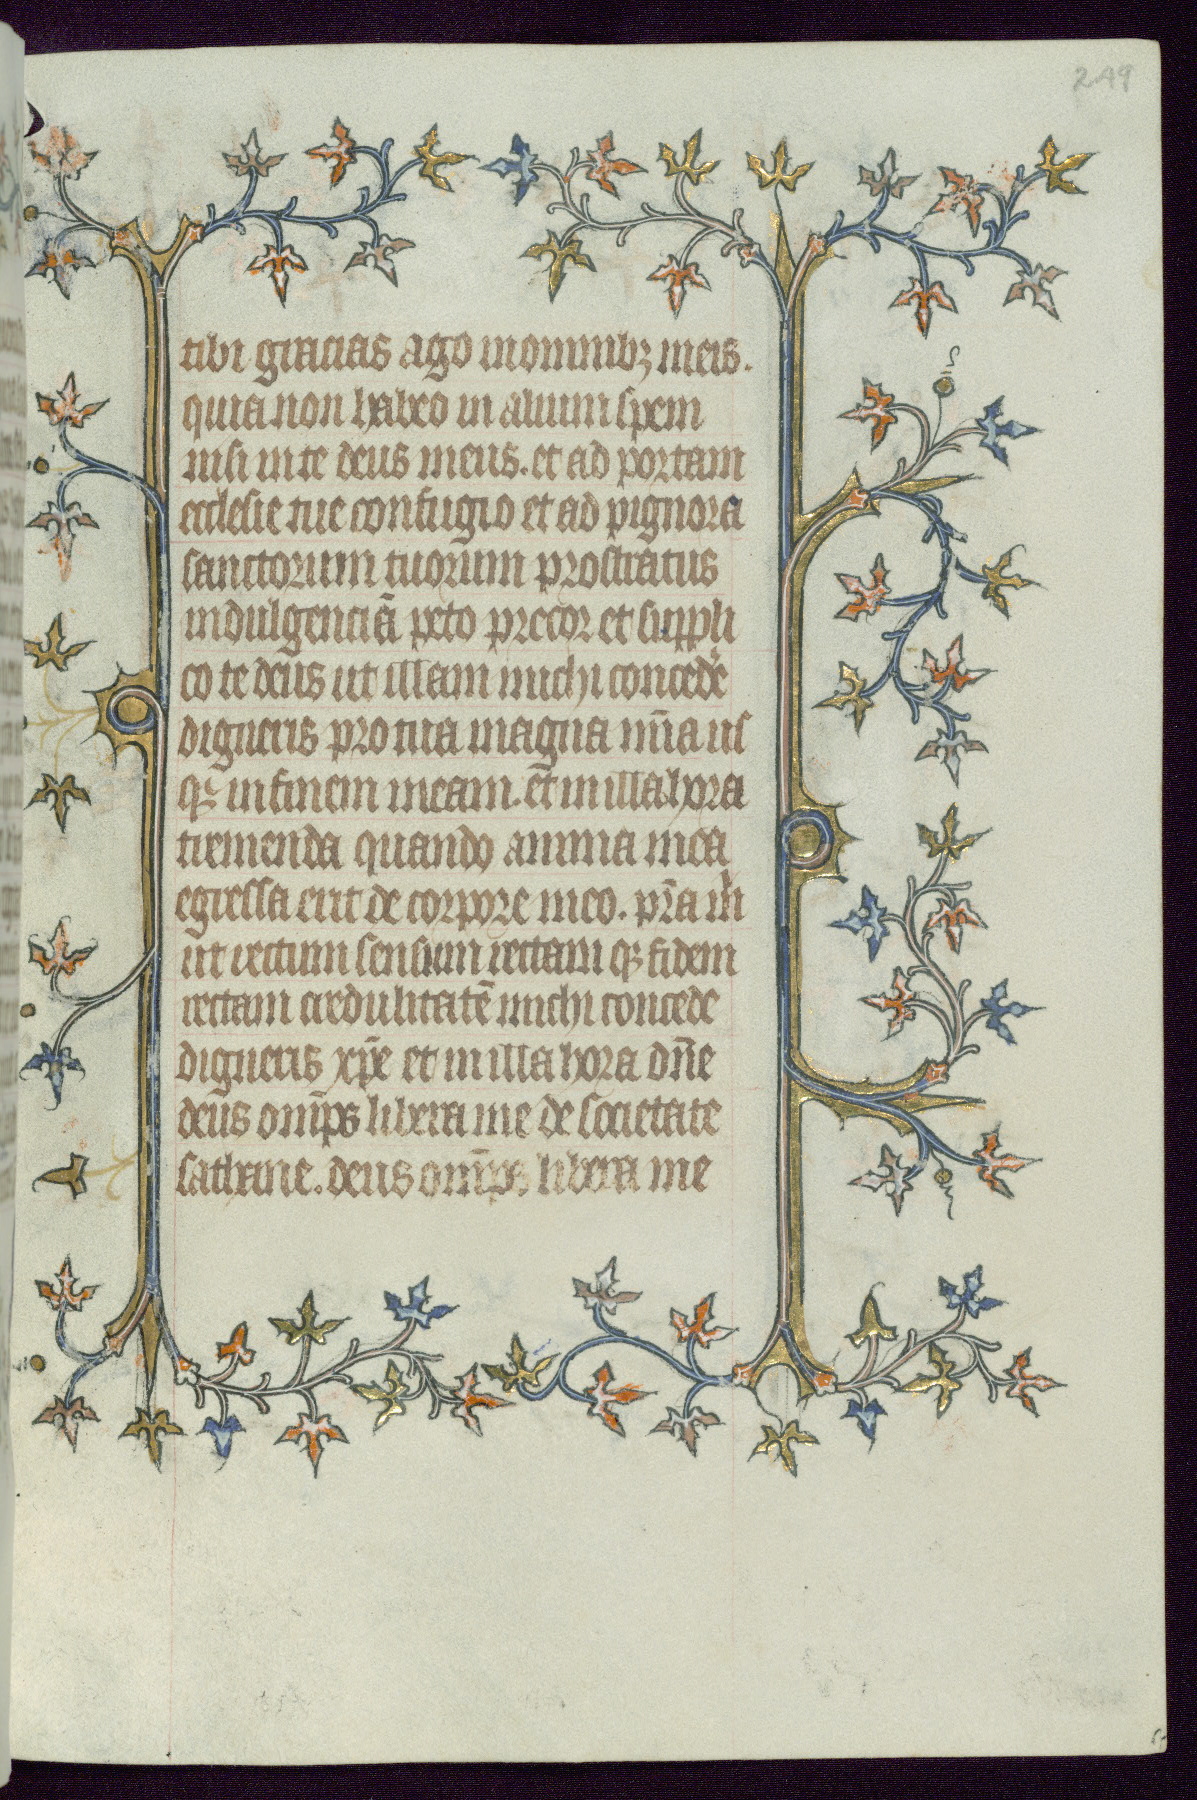 249
tibi gracias ago in omnibȝ meis.
quia non habeo in alium spem
nisi in te deus meus. et ad portam
ecclesie tue confugio et ad pignora
sanctorum tuorum prostratus
indulgenciā peto precor et suppli
co te deus ut illam michi concedē
digneris pro tua magna mīa us
qꝫ in finem meam. et in illa hora
tremenda quando anima mea
egressa erit de corpore meo. prīa m̄
ut rectum sensum rectam qꝫ fidem
rectam credulitatē michi concede
digneris xp̄e et in illa hora dn̄e
deus omīps libera me de societate
sathane. deus omīps libera me